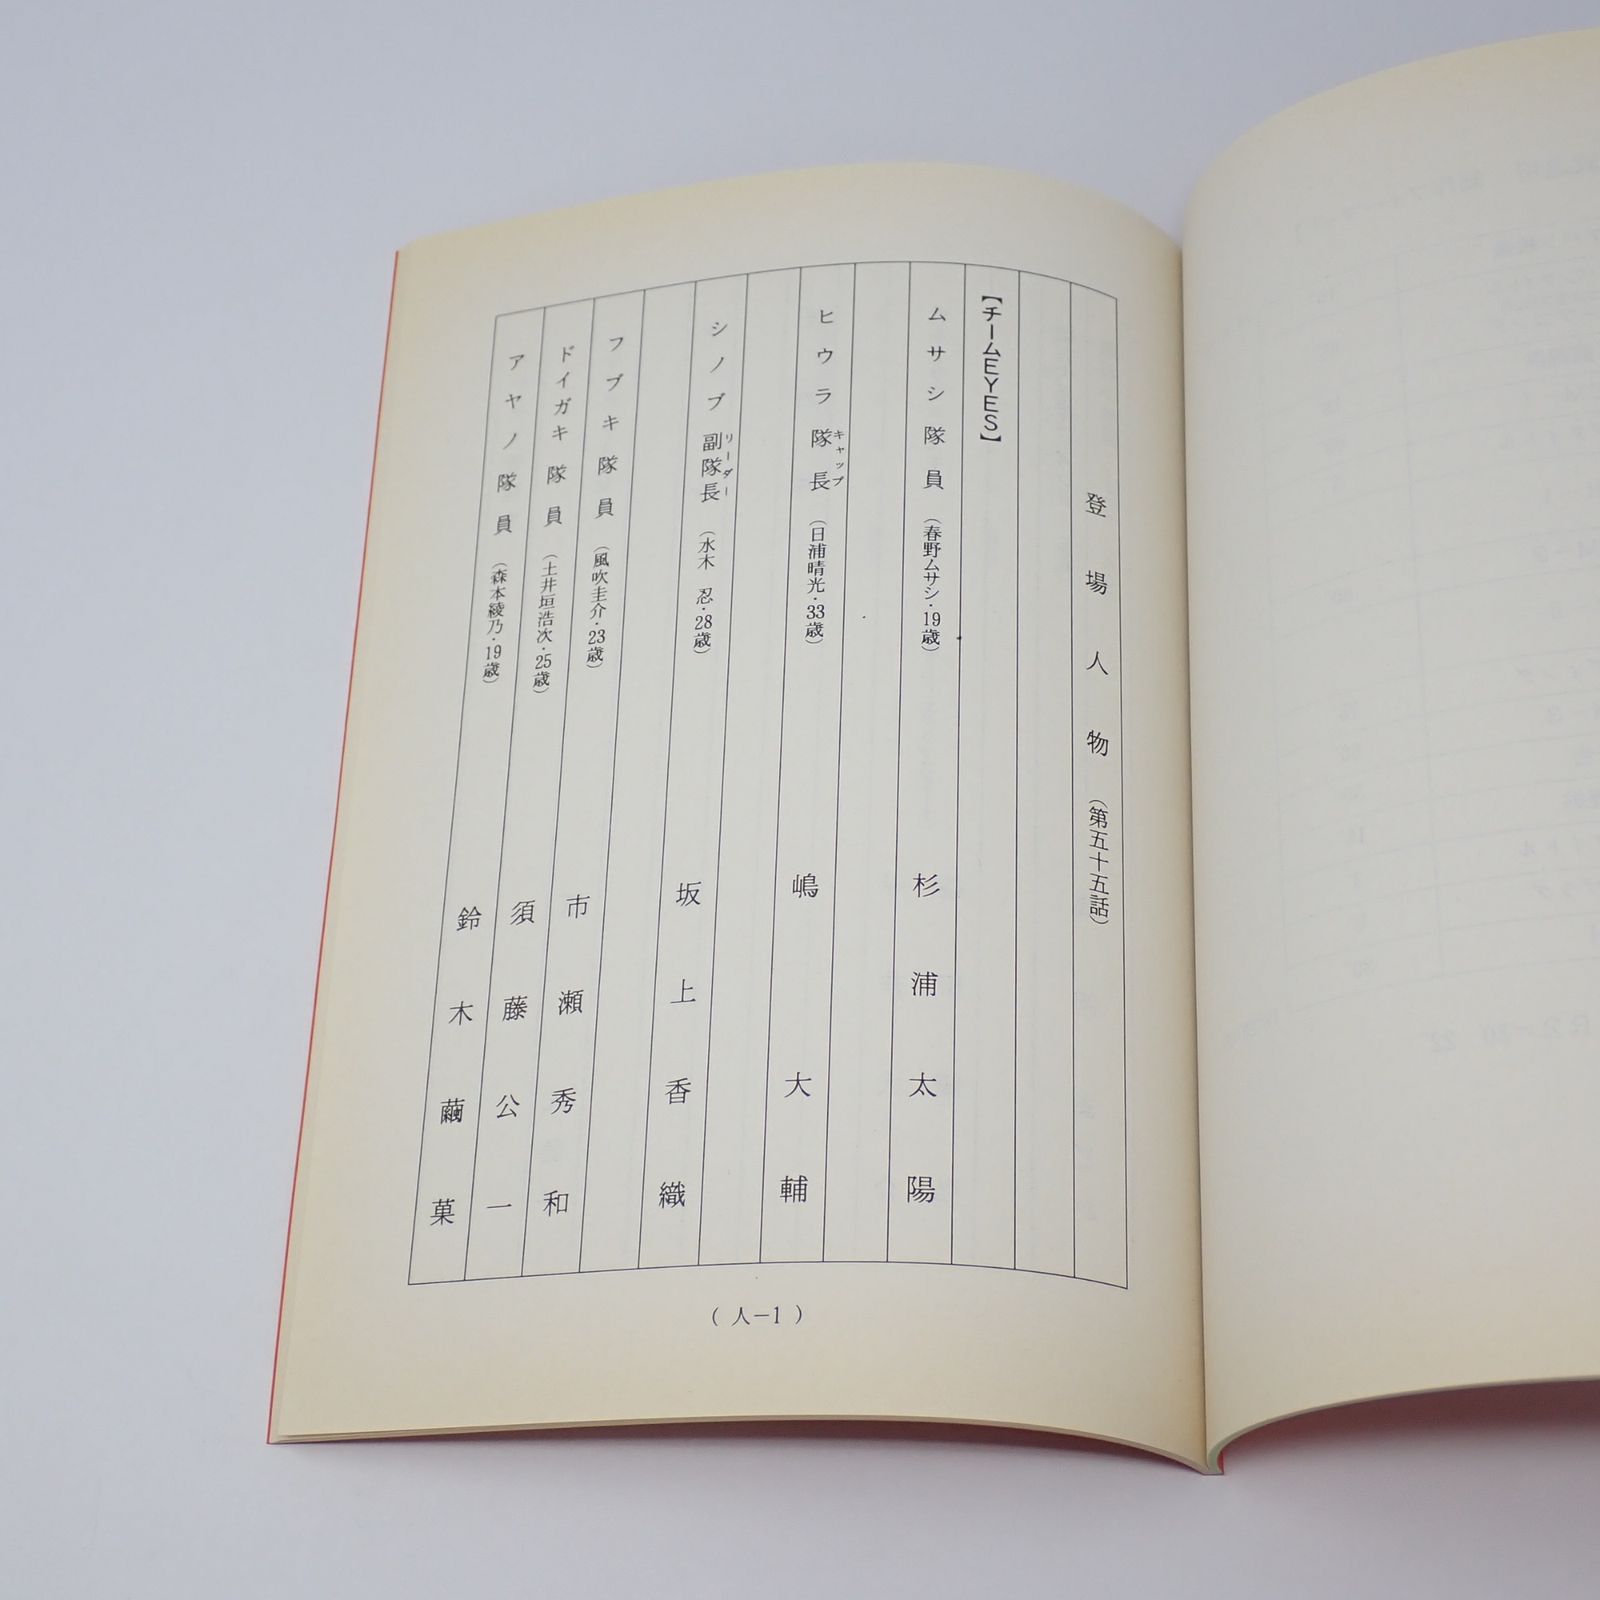 登場人物（第五十五話）
【チームEYES】
ムサシ隊員（春野ムサシ・19歳） 杉浦太陽
ヒウラ隊長（日浦晴光・33歳） 嶋大輔
キャップ
シノブ副隊長（水木 忍・28歳） 坂上香織
リーダー
フブキ隊員（風吹圭介・23歳） 市瀬秀和
ドイガキ隊員（土井垣浩次・25歳） 須藤公一
アヤノ隊員（森本綾乃・19歳） 鈴木繭菓
（人－1）